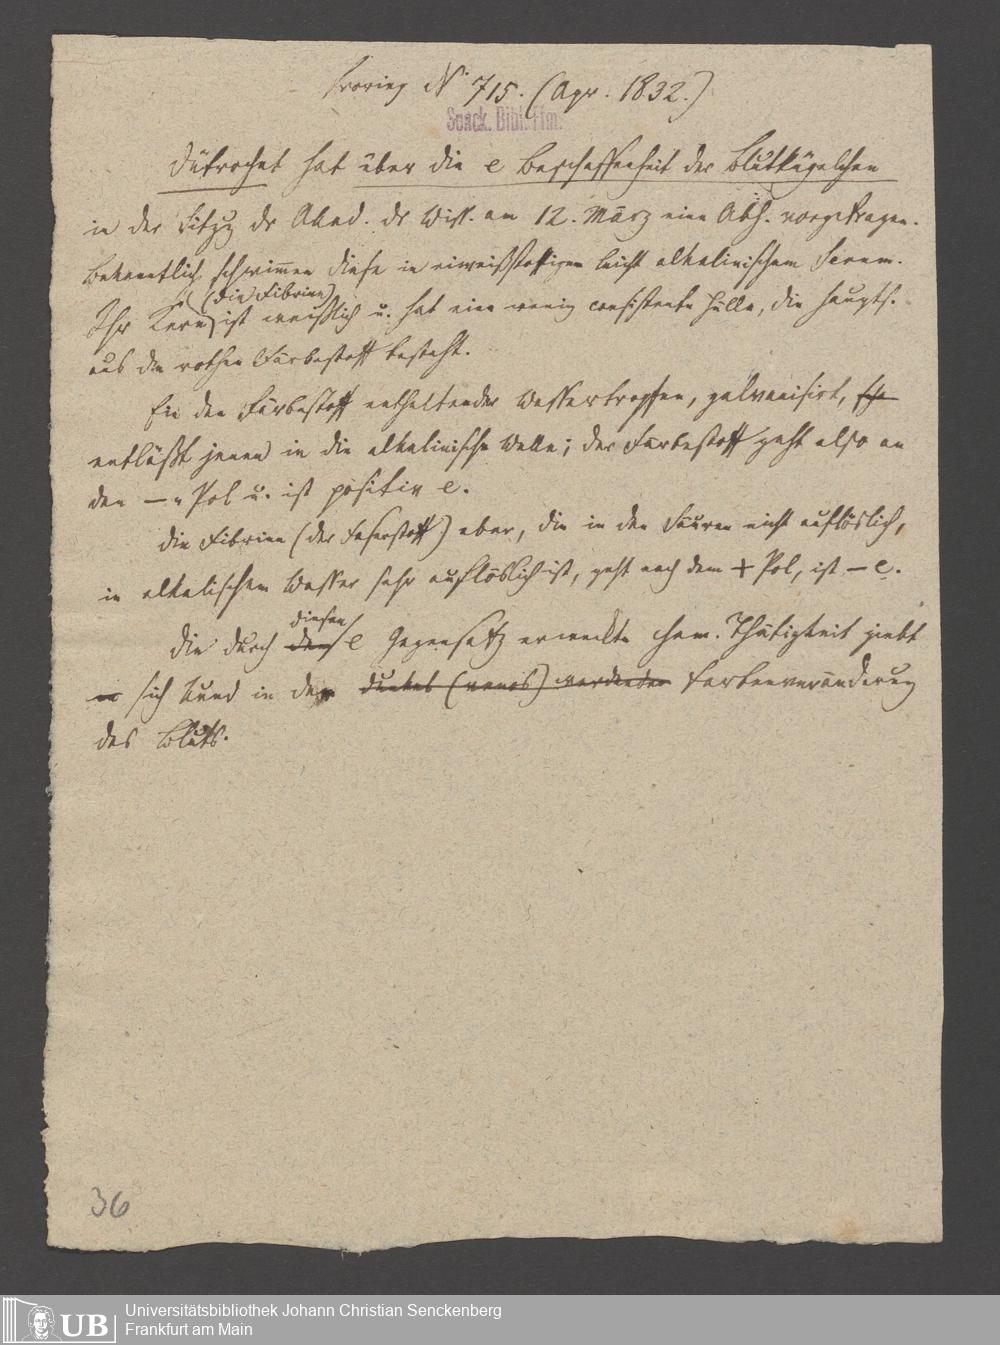 Froriep No 715. (Apr. 1832.)
Senck. Bibl. Ffm.
Dütrochet hat über die e Beschaffenheit der Blutkügelchen
in der Sitzg der Akad. dr Wiss. am 12. März eine Abh. vorgetragen.
Bekanntlich schwimmen diese in eiweißstoffigem leicht alkalinischem Serum.
(die Fibrine)
Ihr Kern ist weißlich u. hat eine wenig consistente Hülle, die haupts.
aus dem rothen Färbestoff besteht.
Ein den Färbestoff enthaltender Wassertropfen, galvanisirt,
entläßt jenen in die alkalinische Welle; der Farbestoff geht also an
den – Pol u. ist positiv e.
Die Fibrine (der Faserstoff) aber, die in den Säuren nicht auflöslich,
in alkalischem Wasser sehr auflöslich ist, geht nach dem + Pol, ist – e.
diesen
Die durch den e Gegensatz erweckte chem. Thätigkeit giebt
sich kund in der dunkel (venös) werdenden Farbenveränderung
des Bluts.
36
UB
Universitätsbibliothek Johann Christian Senckenberg
Frankfurt am Main